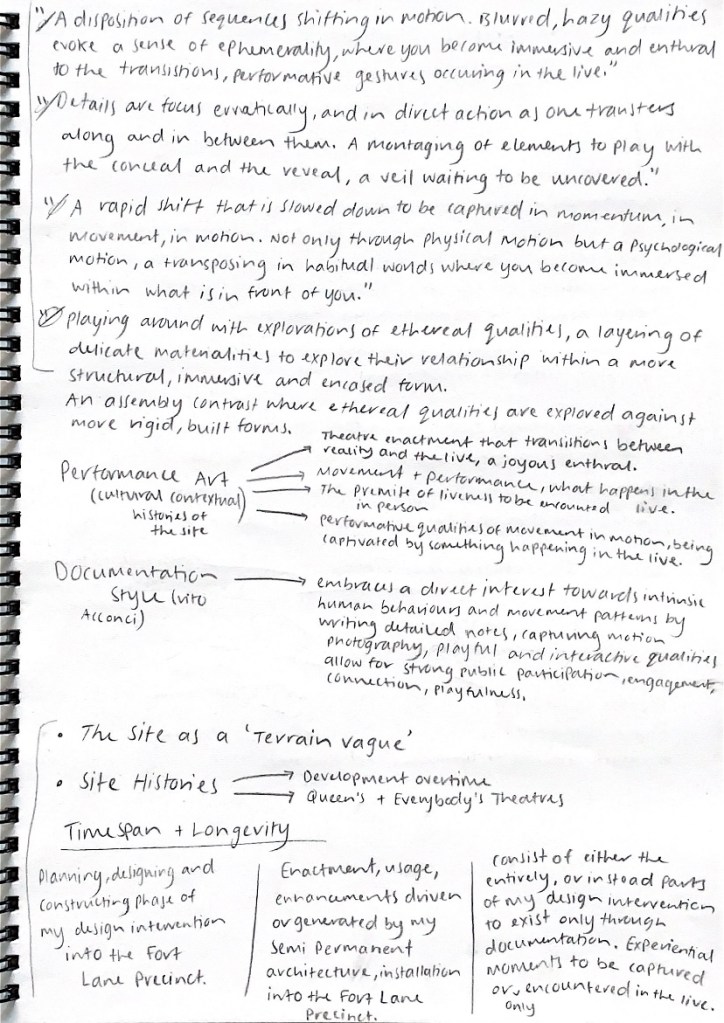 "A disposition of sequences shifting in motion. Blurred, hazy qualities
evoke a sense of ephemerality, where you become immersive and enthral
to the transistions, performative gestures occuring in the live."
"Details are focus erratically, and in direct action as one transfers
along and in between them. A montaging of elements to play with
the conceal and the reveal, a veil waiting to be uncovered."
"A rapid shift that is slowed down to be captured in momentum, in
movement, in motion. Not only through physical motion but a psychological
motion, a transposing in habitual worlds where you become immersed
within what is in front of you."
"Playing around with explorations of ethereal qualities, a layering of
delicate materialities to explore their relationship within a more
structural, immersive and encased form.
An assembly contrast where ethereal qualities are explored against
more rigid, built forms.
Performance Art
(cultural contextual)
histories of
the site
Theatre enactment that transistions between
reality and the live, a joyous enthral.
Movement + performance, what happens in the
live.
The premise of liveness to be encounted
in person
performative qualities of movement in motion, being
captivated by something happening in the live.
Documentation
Style (vito
Acconci)
embraces a direct interest towards intrinsic
human behaviours and movement patterns by
writing detailed notes, capturing motion
photography, playful and interactive qualities
allow for strong public participation, engagement,
connection, playfulness.
• The site as a 'Terrain vague'
• Site Histories
Development overtime
Queen's + Everybody's Theatres
Timespan + Longevity
Planning, designing and
constructing phase of
my design intervention
into the Fort
Lane Precinct.
Enactment, usage,
enhancements driven
or generated by my
semi permanent
architecture, installation
into the Fort Lane
Precinct.
consist of either the
entirely, or instead parts
of my design intervention
to exist only through
documentation. Experiential
moments to be captured
or encountered in the live.
only